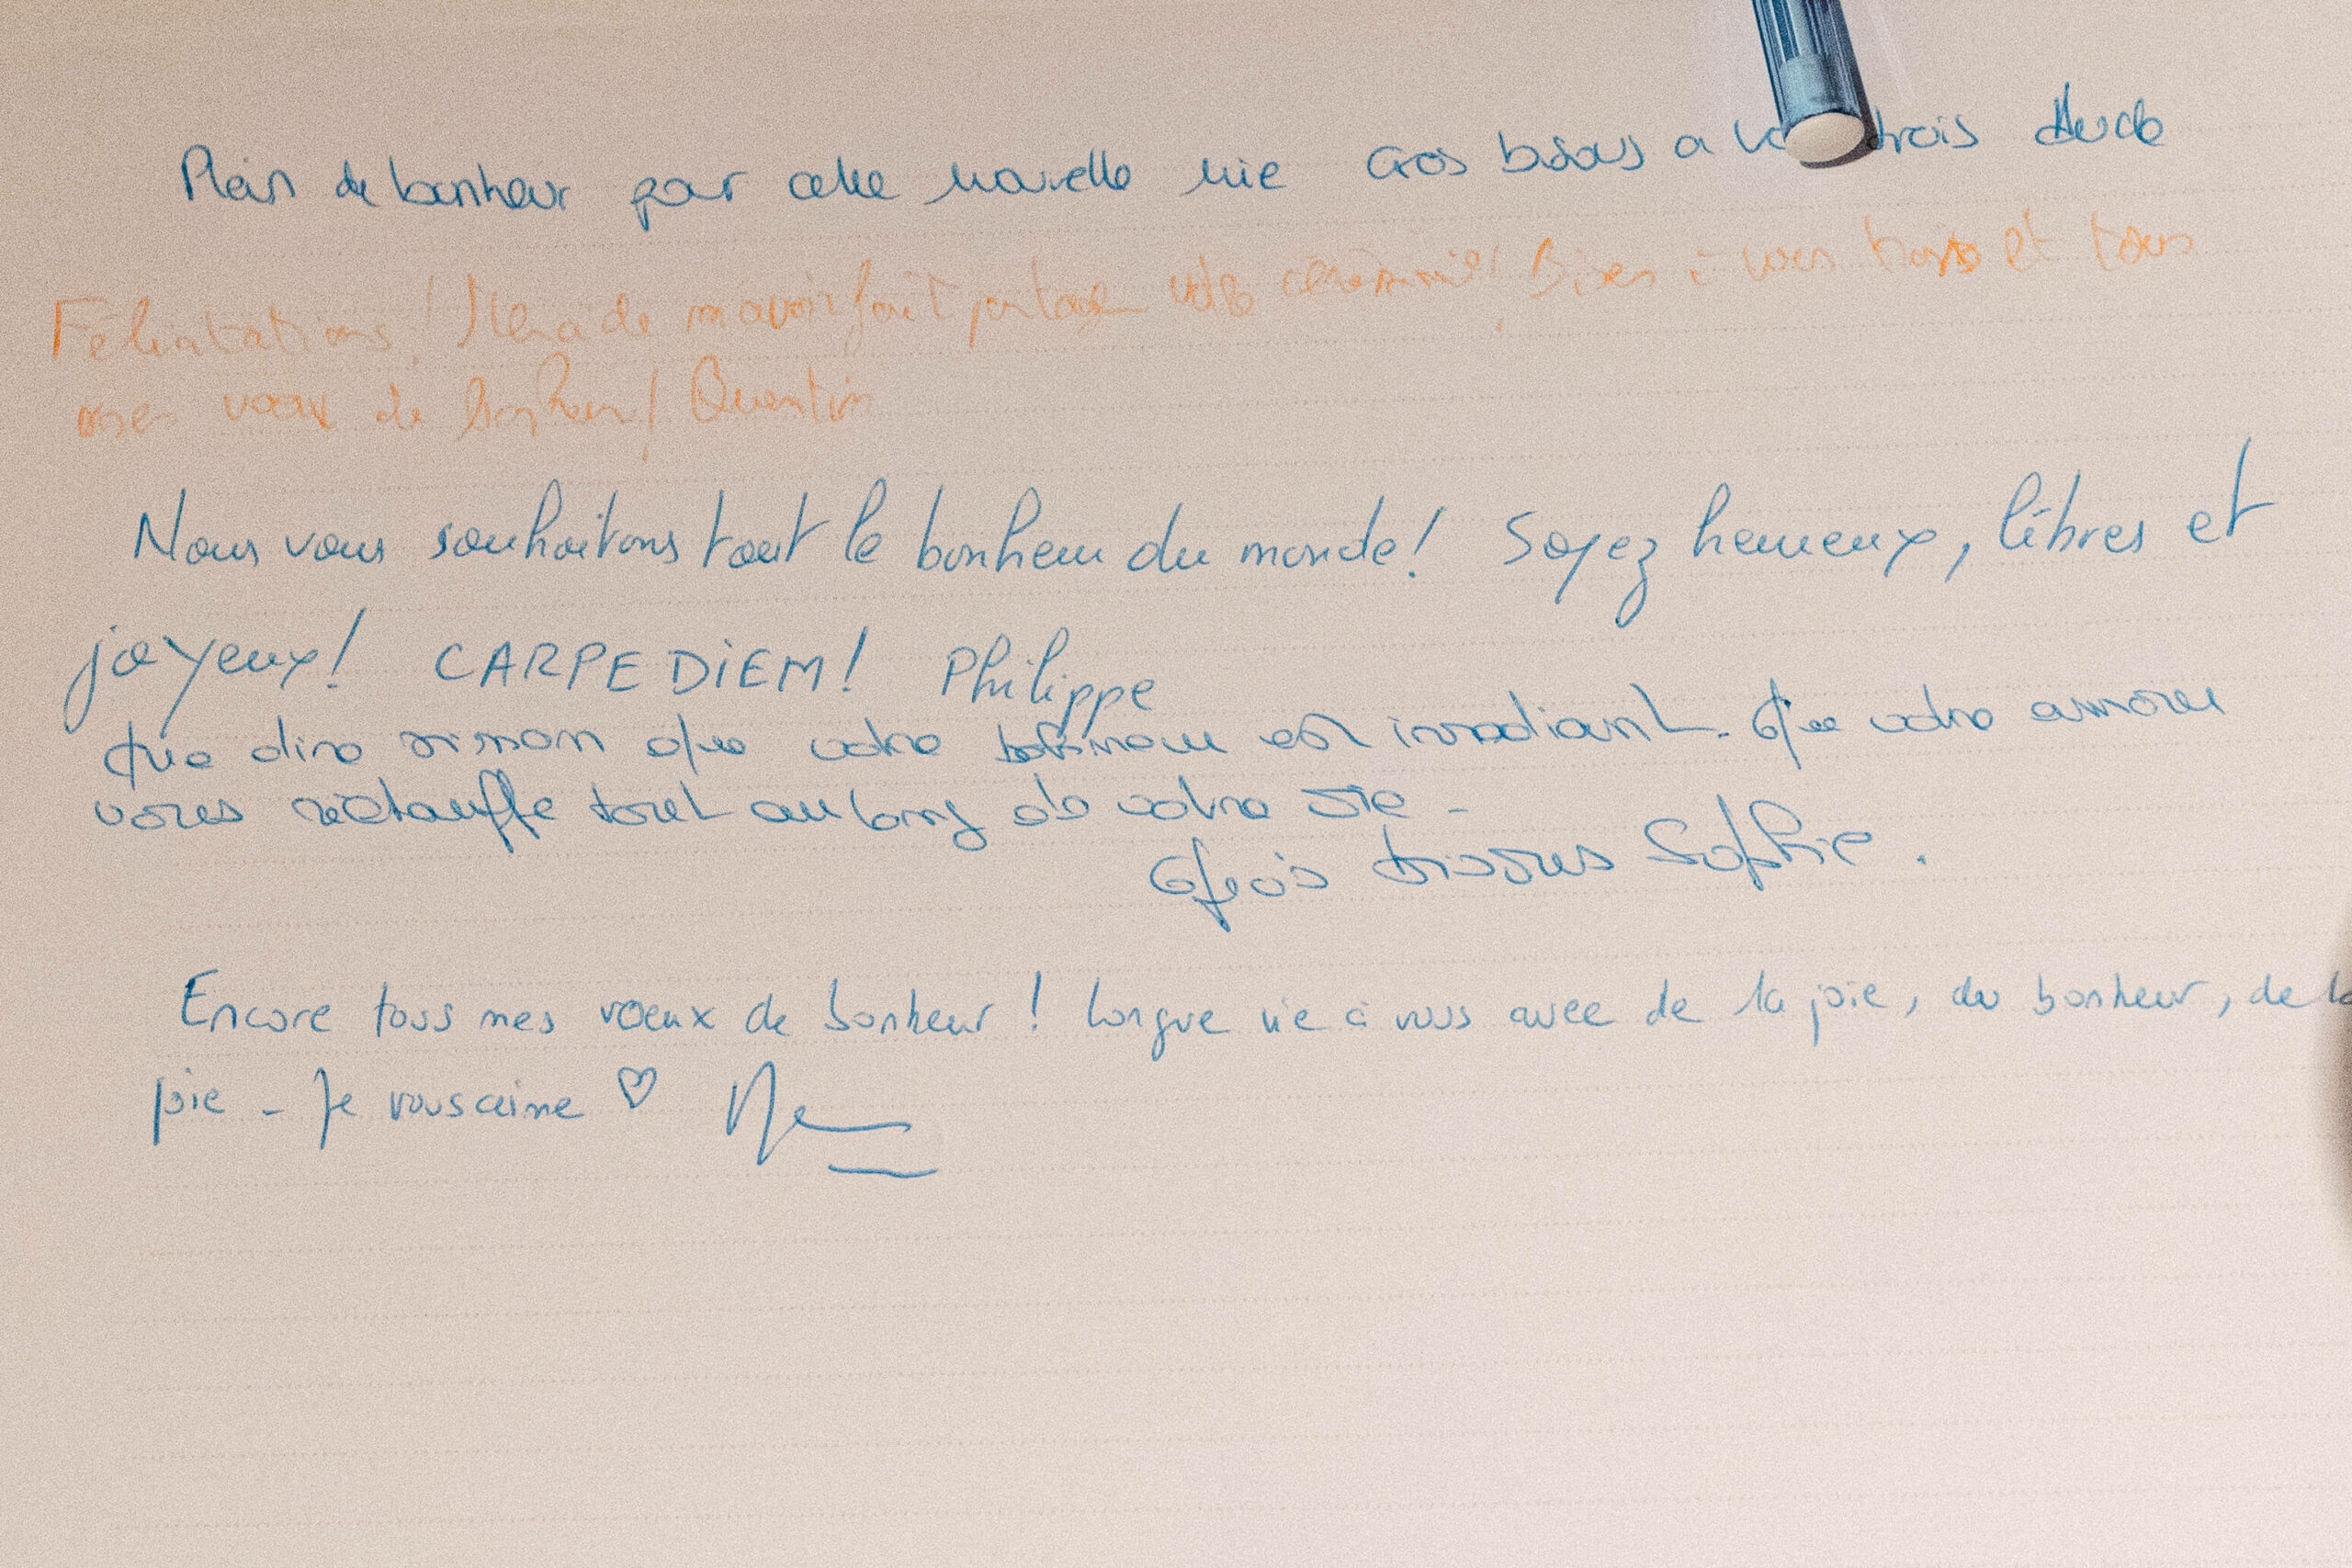 Plein de bonheur pour cette nouvelle vie Gros bisous a trois
Félicitations! de m'avoir fait partager votre cérémonie! Bises à vous trois et tous
mes vœux de bonheur! Quentin
Nous vous souhaitons tout le bonheur du monde! Soyez heureux, libres et
joyeux! CARPE DIEM! Philippe
Que dire sinon que votre bonheur est irradiant. Que votre amour
vous réchauffe tout au long de votre vie -
Gros bisous Sophie.
Encore tous mes voeux de bonheur! Longue vie à vous avec de la joie, du bonheur, de la
joie - Je vous aime ♡